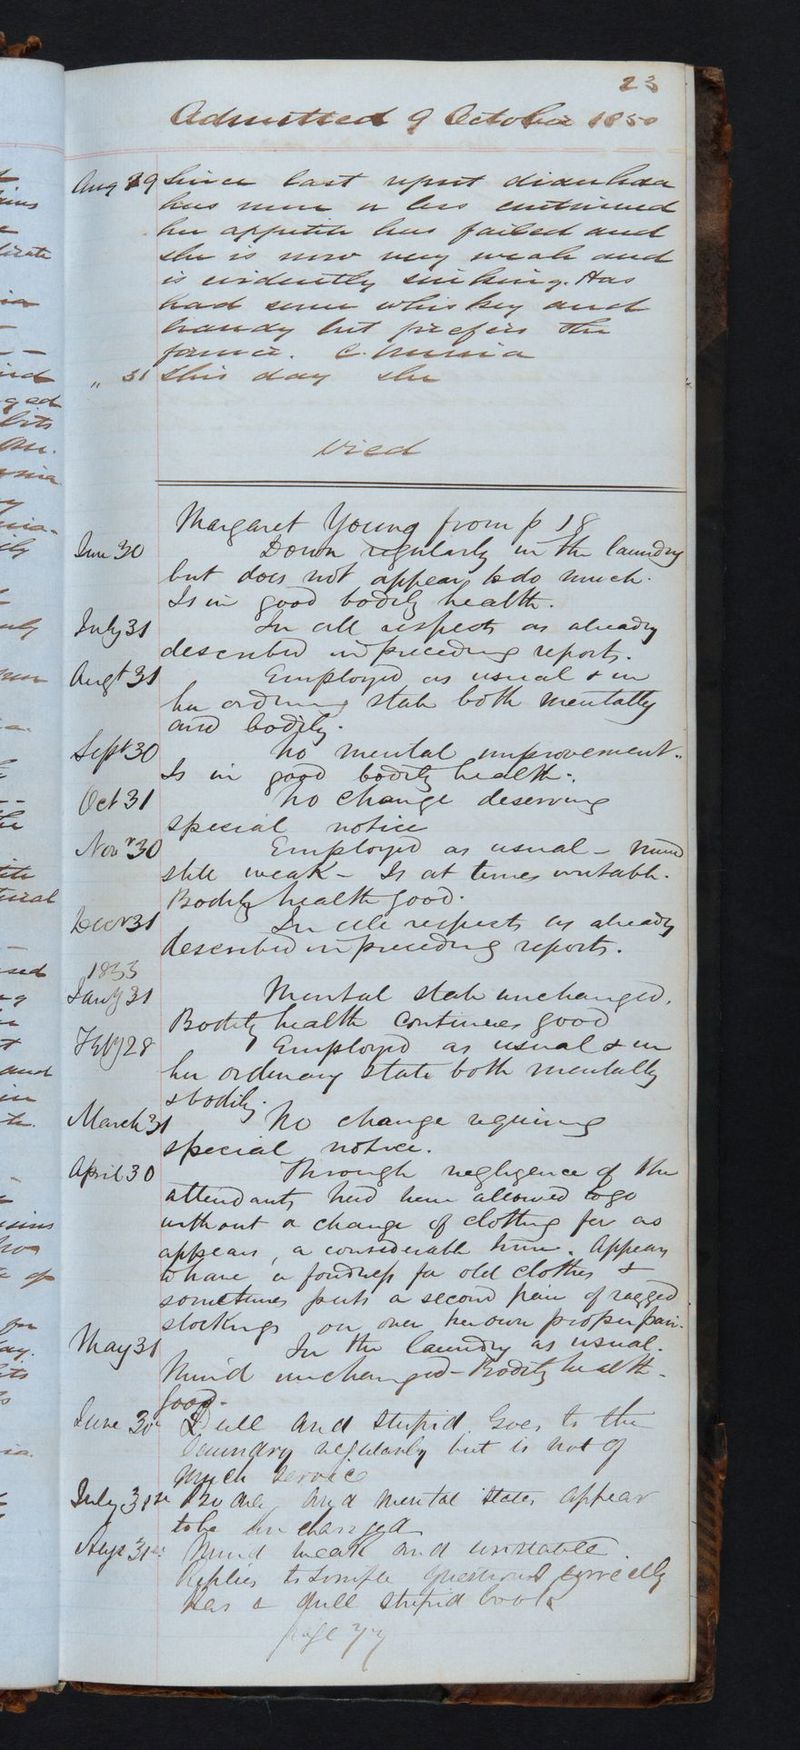 23
Admitted 9 October 1850
Aug 29 Since last report diarrhoea
has more or less continued
her appetite has failed and
she is now very weak and
is evidently sinking. Has
had some whiskey and
brandy but prefers the
former. C.
" 31 This day she
Died
Margaret Young from p 18
June 30 Down regularly in the laundry
but does not appear to do much.
Is in good bodily health.
July 31 In all respects as already
described in preceding reports.
Augt 31 Employed as usual & in
her ordinary state both mentally
and bodily.
Sept 30 No mental improvement.
Is in good bodily health.
Oct 31 No change deserving
special notice
Novr 30 Employed as usual - mind
still weak - Is at times irritable.
Bodily health good.
Decr 31 In all respects as already
described in preceding reports.
1853
Jany 31 Mental state unchanged.
Bodily health continues good
Feby 28 Employed as usual & in
her ordinary state both mentally
& bodily.
March 31 No change requiring
special notice.
April 30 Through negligence of the
attendants had been allowed to go
without a change of clothing for as
appears, a considerable time. Appears
to have a fondness for old clothes &
sometimes puts a second pair of ragged
stockings on over her own proper pair.
May 31 In the laundry as usual.
Mind unchanged - Bodily health -
good.
June 30 Dull and stupid Goes to the
laundry regularly but is not of
much service
July 31st and mental states appear
to be unchanged
Augt 31st Mind weak and
Replies to simple questions correctly
Has a dull stupid look
page 77